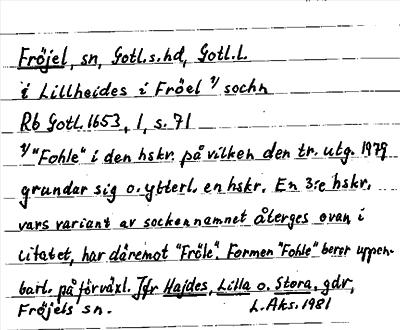 Fröjel, sn, Gotl.s.hd, Gotl.l.
i Lillheides i Fröel ¹⁾ sochn
Rb Gotl. 1653, 1, s. 71
¹⁾ "Fohle" i den hskr. på vilken den tr. utg. 1979
grundar sig o. ytterl. en hskr. En 3:e hskr.
vars variant av sockennamnet återges ovan i
citatet, har däremot "Fröle". Formen "Fohle" beror uppen-
barl. på förväxl. Jfr Hajdes, Lilla o. Stora, gdr,
Fröjels sn. L.Aks. 1981